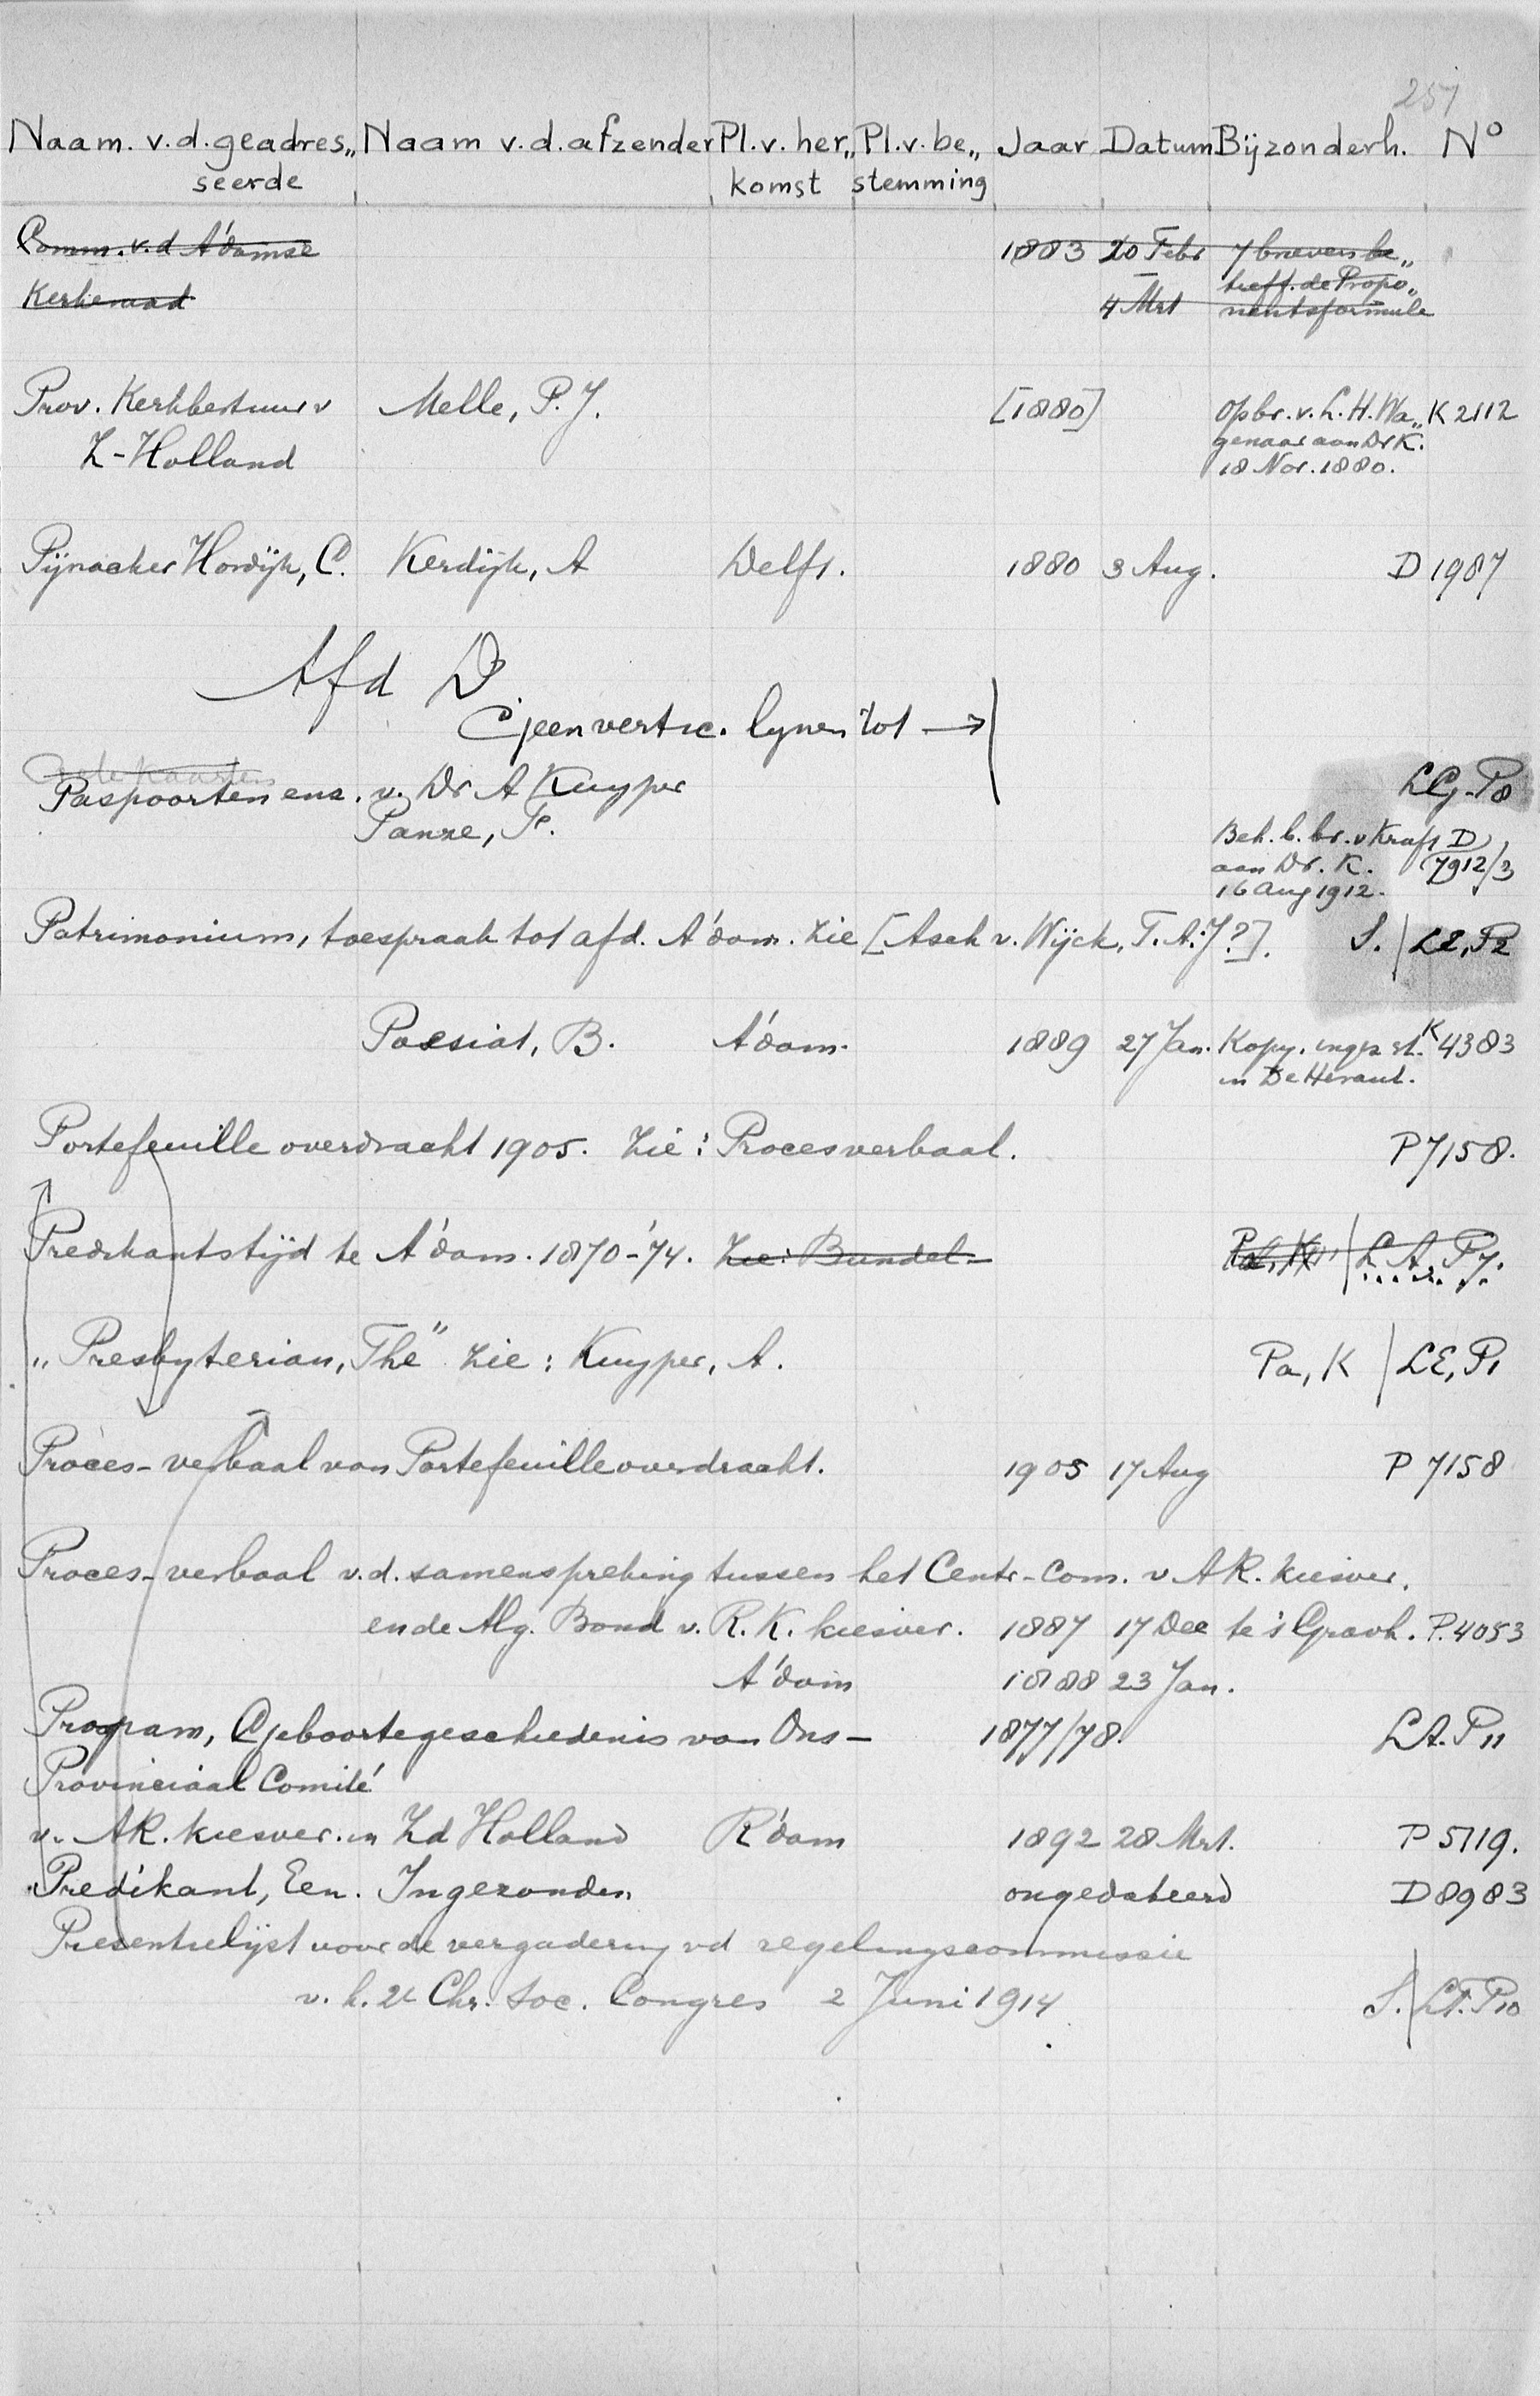 251
Naam. v.d. geadres„ Naam v.d. afzender Pl. v. her„ Pl. v. be„ Jaar Datum Bijzonderh. No
seerde komst stemming
Comm. v. d A'damse 1883 20 Febr 7 brieven be„
treff. de Propo„
Kerkeraad 4 Mrt nentsformule
Prov. Kerkbestuur v Melle, P. J. [1880] opbr. v. L. H. Wa„ K 2112
Z-Holland genaar aan Dr K.
18 Nov. 1880.
Pijnacker Hordijk, C. Kerdijk, A Delft. 1880 3 Aug. D 1987
Afd D
Geen vertic. lynen tot →
Paspoorten enz. v. Dr A Kuyper LG, P8
Panne, P. Beh. b. br. v Kraft D
aan Dr. K. 7912/3
16 Aug 1912.
Patrimonium, toespraak tot afd. A'dam. Zie [Asch v. Wijck, T. A. J?]. S. / LE, P2
Poesiat, B. A'dam. 1889 27 Jan. Kopy. ingez st. K 4383
in De Heraut.
Portefeuille overdracht 1905. Zie: Procesverbaal. P 7158.
Predikantstijd te A'dam. 1870-'74. Zie: Bundel- L A. P7.
„Presbyterian, The" Zie: Kuyper, A. Pa, K / LE, P1
Proces-verbaal van Portefeuilleoverdracht. 1905 17 Aug P 7158
Proces-verbaal v.d. samenspreking tussen het Centr-Com. v AR. kiesver.
en de Alg. Bond v. R. K. kiesver. 1887 17 Dec te 's Gravh. P. 4053
A'dam 1888 23 Jan.
Program, Geboortegeschiedenis van Ons- 1877/78. LA. P11
Provinciaal Comité
v. AR. kiesver. in Zd Holland R'dam 1892 28 Mrt. P 5119.
Predikant, Een. Ingezonden ongedateerd D 8983
Presentielijst voor de vergadering vd regelingscommissie
v. h. 2e Chr. Soc. Congres 2 Juni 1914 S. / LF. P10